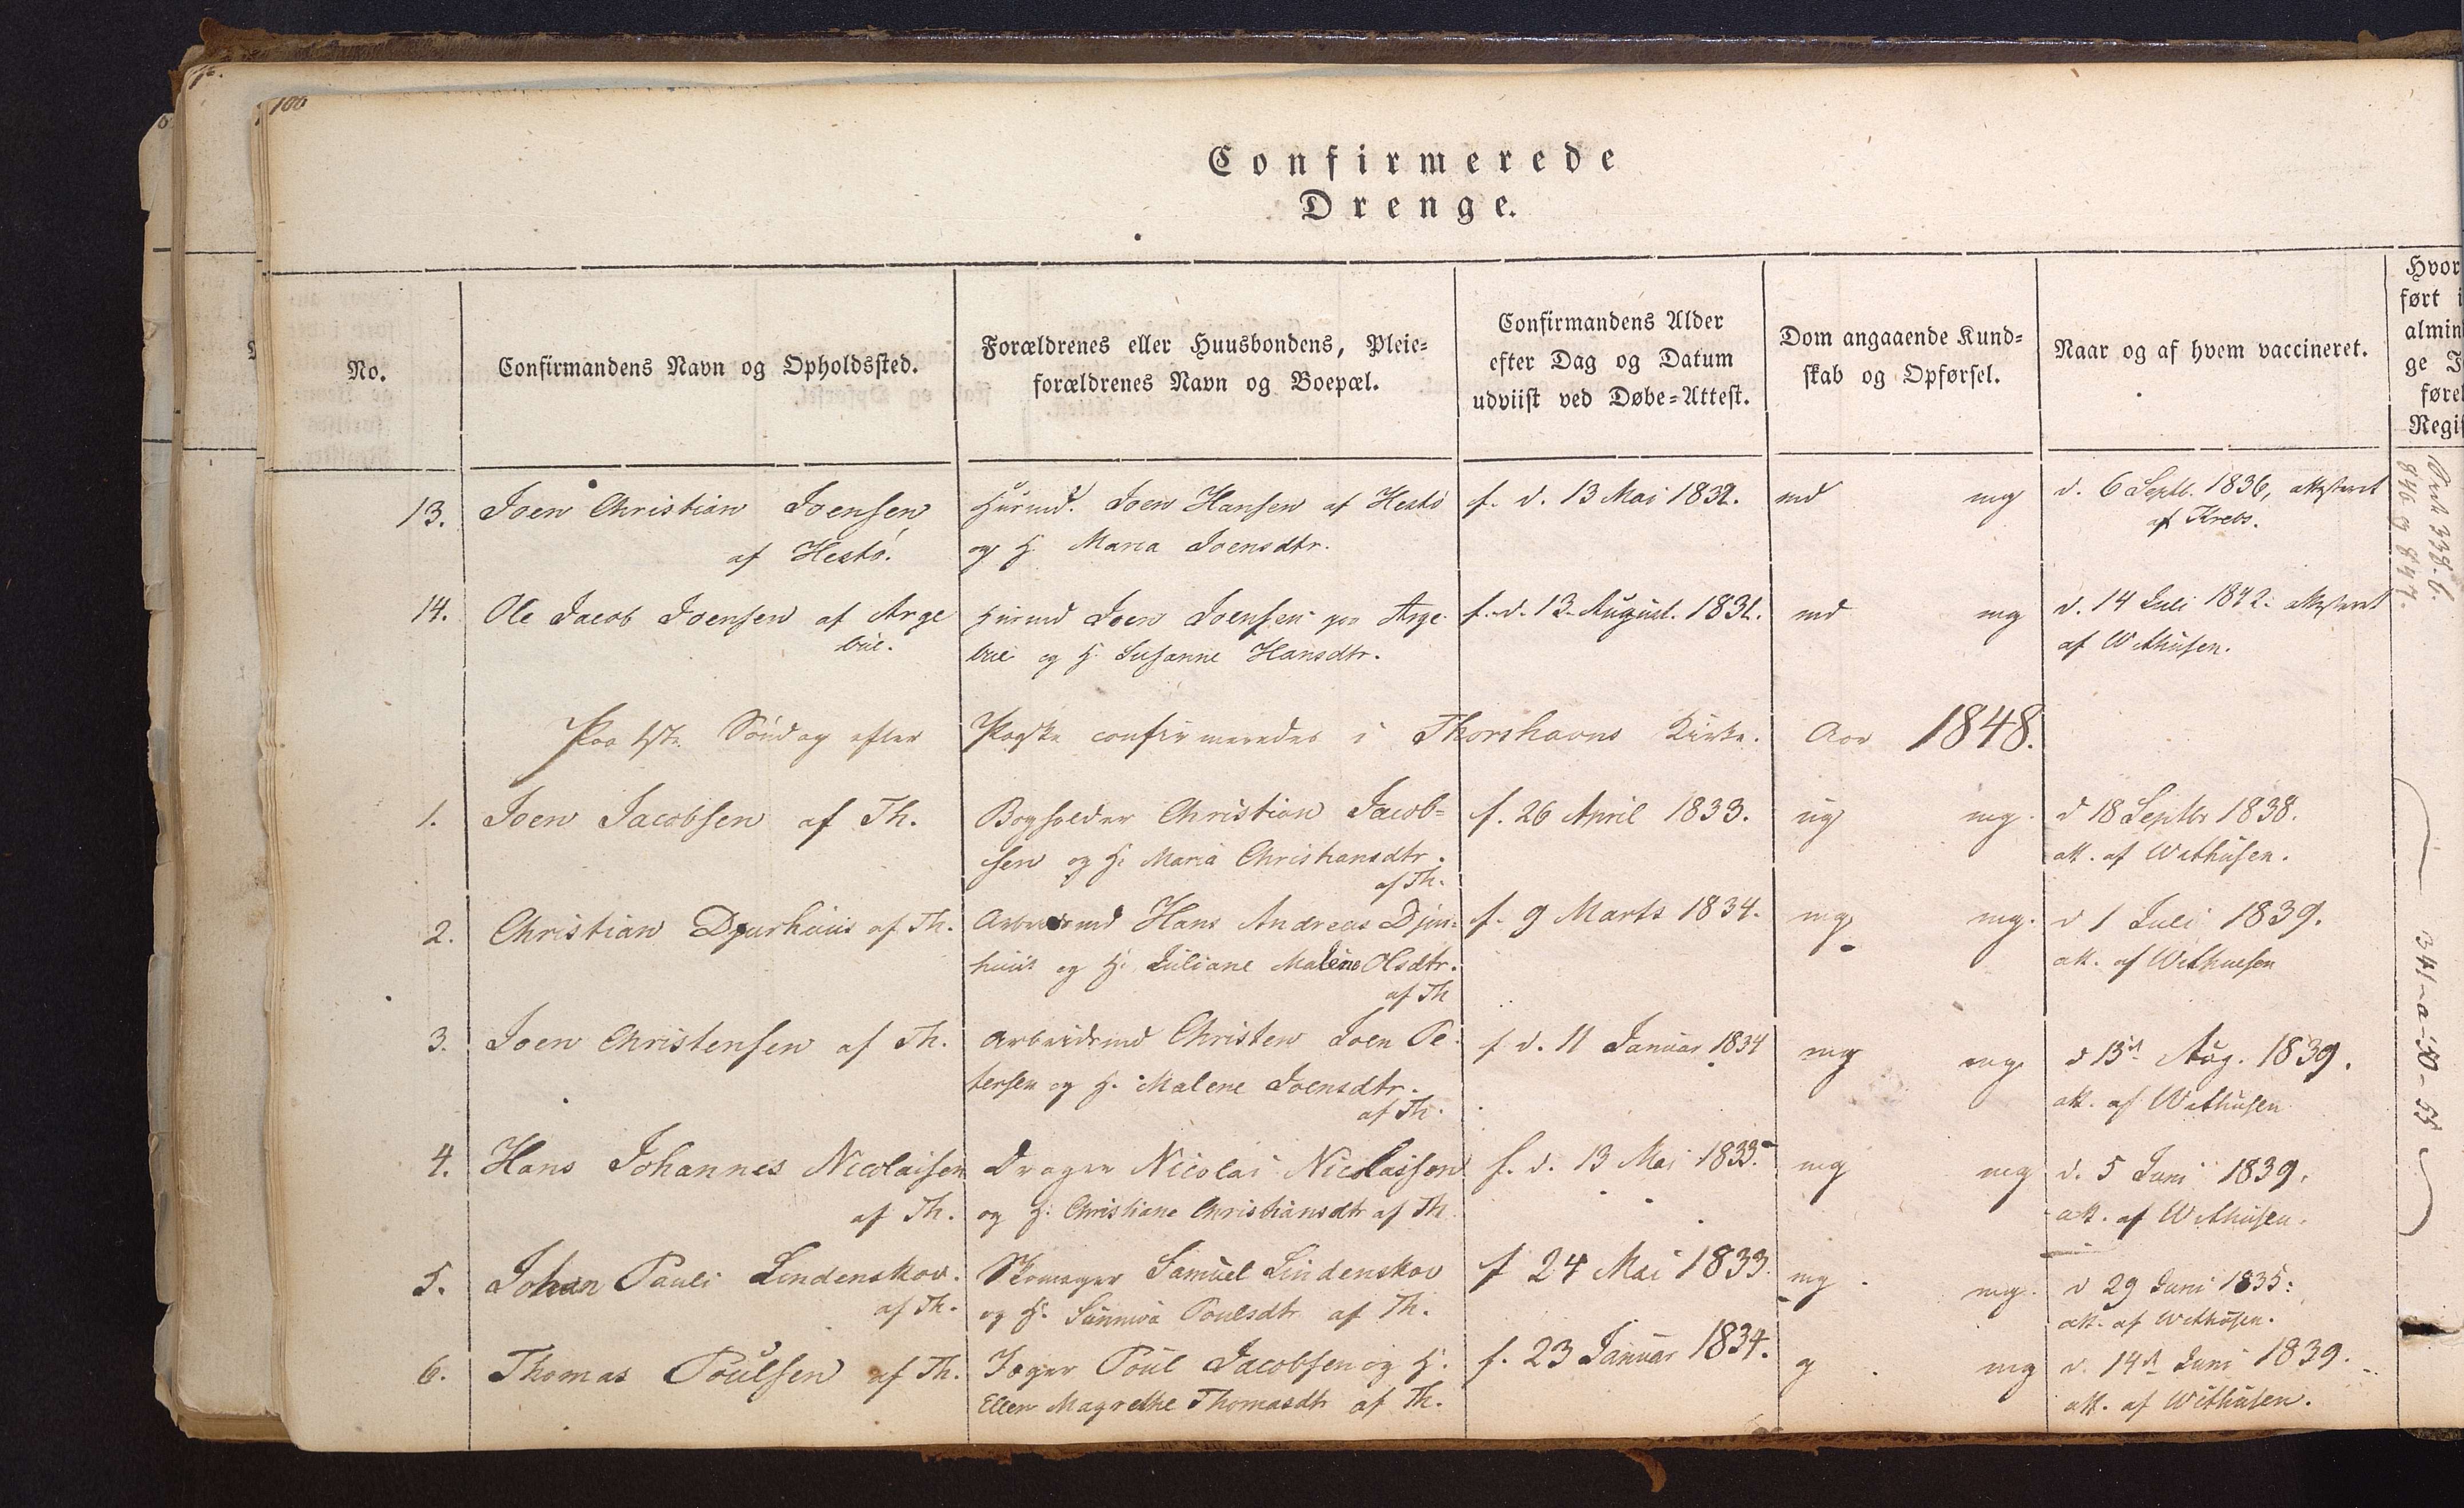 100
Confirmerede
Drenge.
No.
Confirmandens Navn og Opholdssted.
Forældrenes eller Huusbondens, Pleie=
forældrenes Navn og Boepæl.
Confirmandens Alder
efter Dag og Datum
udviist ved Døbe=Attest.
Dom angaaende Kund=
skab og Opførsel.
Naar og af hvem vaccineret.
Hvor
ført i
almin
ge J
føre
Regis
13. Joen Christian Joensen Huusmd. Joen Hansen af Hestø f. d. 13 Mai 1832. md mg d. 6 Septb. 1836, attesteret
af Hestø. og H. Maria Joensdtr. af Krebs.
14. Ole Jacob Joensen af Arge Huusmd Joen Joensen paa Arge f. d. 13 August. 1831. md mg d. 14 Juli 1842. attesteret
bøe. bøe og H. Susanne Hansdtr. af Withusen.
Paa 1ste Søndag efter Paaske confirmeredes i Thorshavns Kirke. Aar 1848.
1. Joen Jacobsen af Th. Bogholder Christian Jacob= f. 26 April 1833. ug mg. d 18 Septbr 1838.
sen og H. Maria Christiansdtr. att. af Withusen.
af Th.
2. Christian Djurhuus af Th. Arbeidsmd Hans Andreas Djur= f. 9 Marts 1834. mg mg. d 1 Juli 1839.
huus og H. Juliane Malene Olsdtr. att. af Withusen
af Th
3. Joen Christensen af Th. Arbeidsmd Christen Joen Pe= f d. 11 Januar 1834 mg mg d 13d Aug. 1839.
tersen og H. Malene Joensdtr. att. af Withusen
af Th.
4. Hans Johannes Nicolaisen Drager Nicolai Nicolaisen f. d. 13 Mai 1833. mg mg d. 5 Juni 1839.
af Th. og H. Christiane Christiansdtr af Th att. af Withusen.
5. Johan Pauli Lindenskov. Skomager Samuel Lindenskov f 24 Mai 1833. mg. mg. d 29 Juni 1835.
af Th. og H. Sunniva Poulsdtr af Th. att. af Withusen.
6. Thomas Poulsen af Th. Jæger Poul Jacobsen og H. f. 23 Januar 1834. g mg d. 14d Juni 1839.
Ellen Magrethe Thomasdtr af Th. att. af Withusen.
338. b.
846 g 847.
341-a-50-55